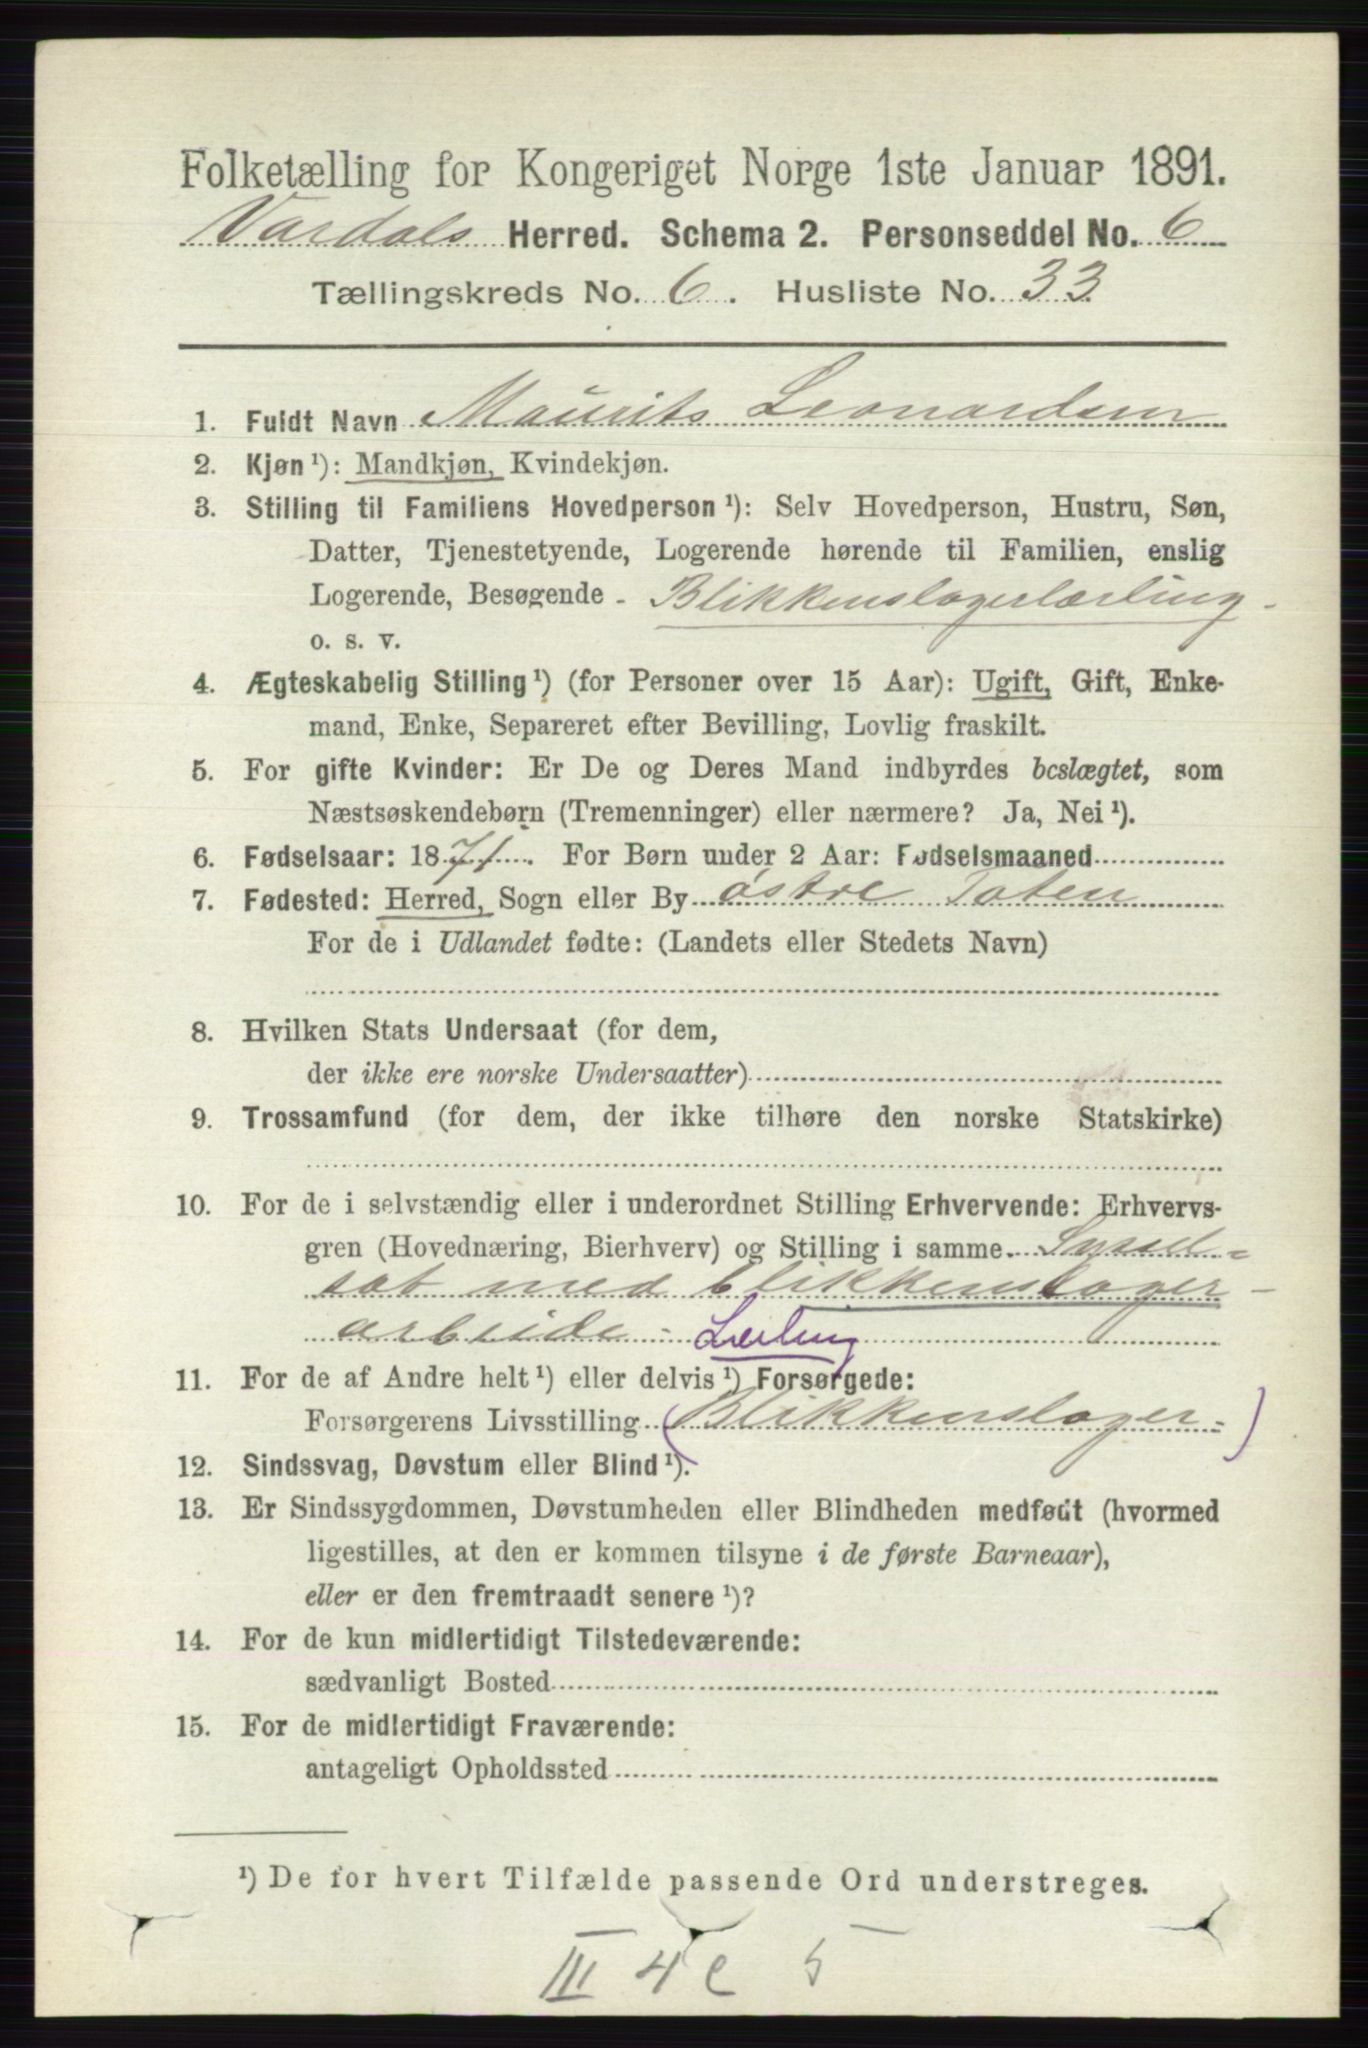 Folketælling for Kongeriget Norge 1ste Januar 1891.
Vardals Herred. Schema 2. Personseddel No. 6
Tællingskreds No. 6. Husliste No. 33
1. Fuldt Navn Maurits Leonardsen
2. Kjøn ¹): Mandkjøn, Kvindekjøn.
3. Stilling til Familiens Hovedperson ¹): Selv Hovedperson, Hustru, Søn,
Datter, Tjenestetyende, Logerende hørende til Familien, enslig
Logerende, Besøgende - Blikkenslagerlærling -
o. s. v.
4. Ægteskabelig Stilling ¹) (for Personer over 15 Aar): Ugift, Gift, Enke-
mand, Enke, Separeret efter Bevilling, Lovlig fraskilt.
5. For gifte Kvinder: Er De og Deres Mand indbyrdes beslægtet, som
Næstsøskendebørn (Tremenninger) eller nærmere? Ja, Nei ¹).
6. Fødselsaar: 1871. For Børn under 2 Aar: Fødselsmaaned
7. Fødested: Herred, Sogn eller By østre Toten
For de i Udlandet fødte: (Landets eller Stedets Navn)
8. Hvilken Stats Undersaat (for dem,
der ikke ere norske Undersaatter)
9. Trossamfund (for dem, der ikke tilhøre den norske Statskirke)
10. For de i selvstændig eller i underordnet Stilling Erhvervende: Erhvervs-
gren (Hovednæring, Bierhverv) og Stilling i samme. Syssel=
sat med blikkenslager-
arbeide - Lærling
11. For de af Andre helt ¹) eller delvis ¹) Forsørgede:
Forsørgerens Livsstilling (Blikkenslager -)
12. Sindssvag, Døvstum eller Blind ¹).
13. Er Sindssygdommen, Døvstumheden eller Blindheden medfødt (hvormed
ligestilles, at den er kommen tilsyne i de første Barneaar),
eller er den fremtraadt senere ¹)?
14. For de kun midlertidigt Tilstedeværende:
sædvanligt Bosted
15. For de midlertidigt Fraværende:
antageligt Opholdssted
¹) De for hvert Tilfælde passende Ord understreges.
III 4 c 5